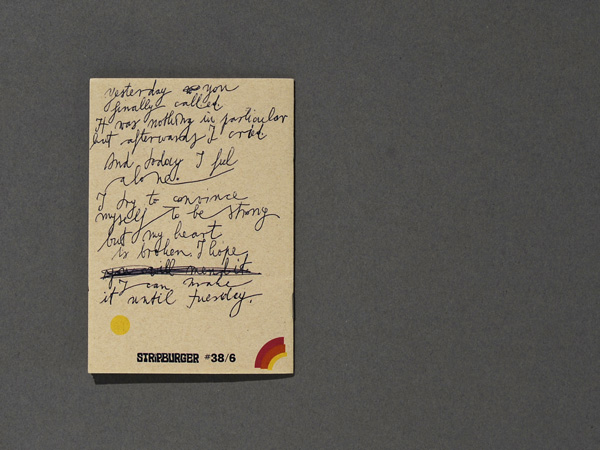 yesterday you
finally called
It was nothing in particular
but afterwards I cried
And today I feel
alone.
I try to convince
myself to be strong
but my heart
is broken. I hope
you will mend it.
I can make
it until tuesday.
STRIPBURGER #38/6